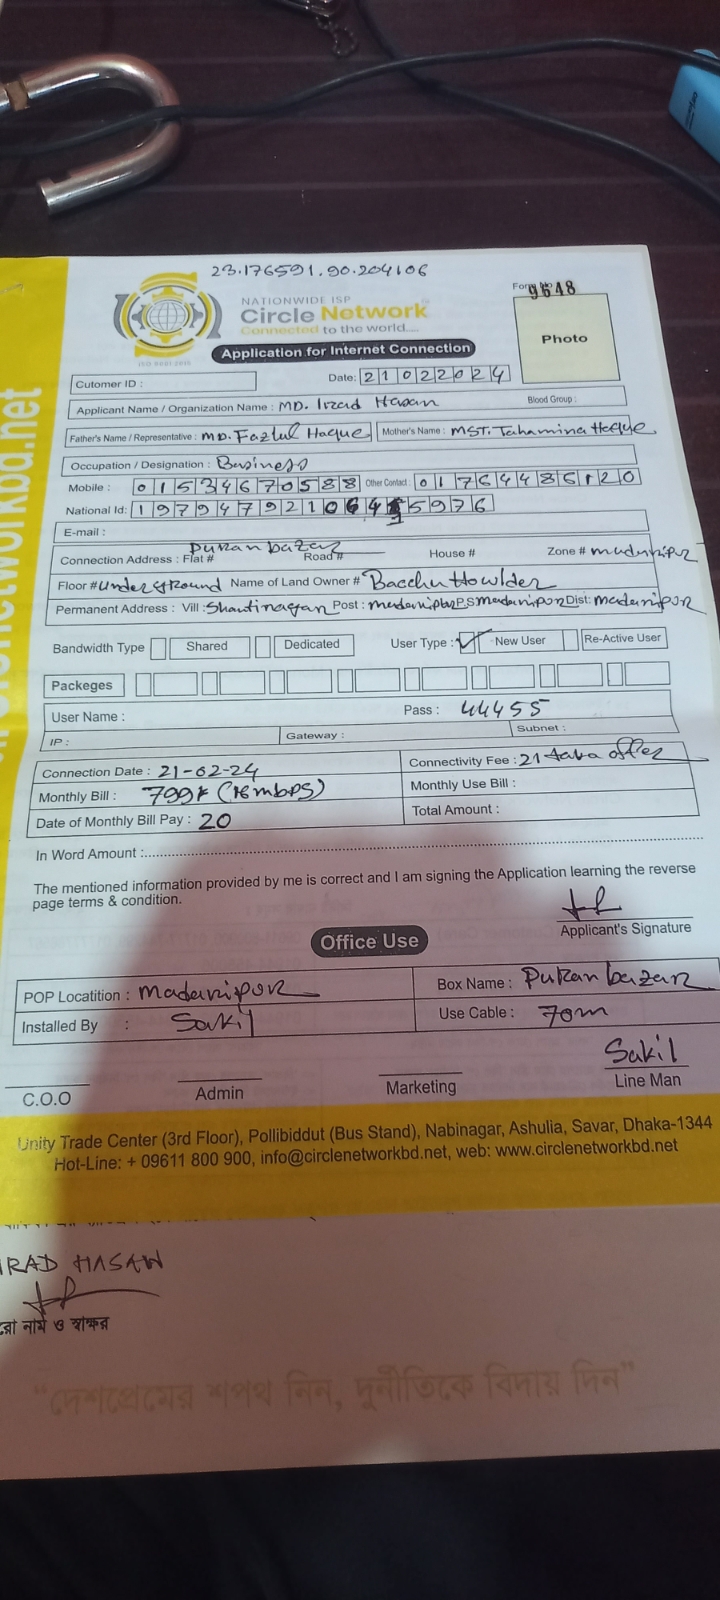 23.176591.90.204106
NATIONWIDE ISP
Circle Network
Connected to the world....
ISO 9001:2015
Form No 9648
Photo
Application for Internet Connection
Cutomer ID :
Date: 21022024
Applicant Name / Organization Name : MD. Irad Hasan
Blood Group :
Father's Name / Representative : MD. Fazlul Haque
Mother's Name : MST. Tahamina Heque
Occupation / Designation : Business
Mobile : 01534670588 Other Contact : 01764486120
National Id: 197947921064 5976
E-mail :
Connection Address : Flat # Puran bazar Road # House # Zone # madaripur
Floor # Underground Name of Land Owner # Bacchu Howlder
Permanent Address : Vill : Shantinagar Post : madaripur P.S madaripur Dist: madaripur
Bandwidth Type Shared Dedicated User Type : ✓ New User Re-Active User
Packeges
User Name : Pass : 44455
IP : Gateway : Subnet :
Connection Date : 21-02-24
Connectivity Fee : 21 taka offer
Monthly Bill : 799 (16mbps)
Monthly Use Bill :
Date of Monthly Bill Pay : 20
Total Amount :
In Word Amount :
The mentioned information provided by me is correct and I am signing the Application learning the reverse
page terms & condition.
Applicant's Signature
Office Use
POP Locatition : Madaripur
Box Name : Puran bazar
Installed By : Sakil
Use Cable : 70m
Sakil
C.O.O Admin Marketing Line Man
Unity Trade Center (3rd Floor), Pollibiddut (Bus Stand), Nabinagar, Ashulia, Savar, Dhaka-1344
Hot-Line: + 09611 800 900, info@circlenetworkbd.net, web: www.circlenetworkbd.net
IRAD HASAN
নাম ও স্বাক্ষর
“দেশপ্রেমের শপথ নিন, দুর্নীতিকে বিদায় দিন”